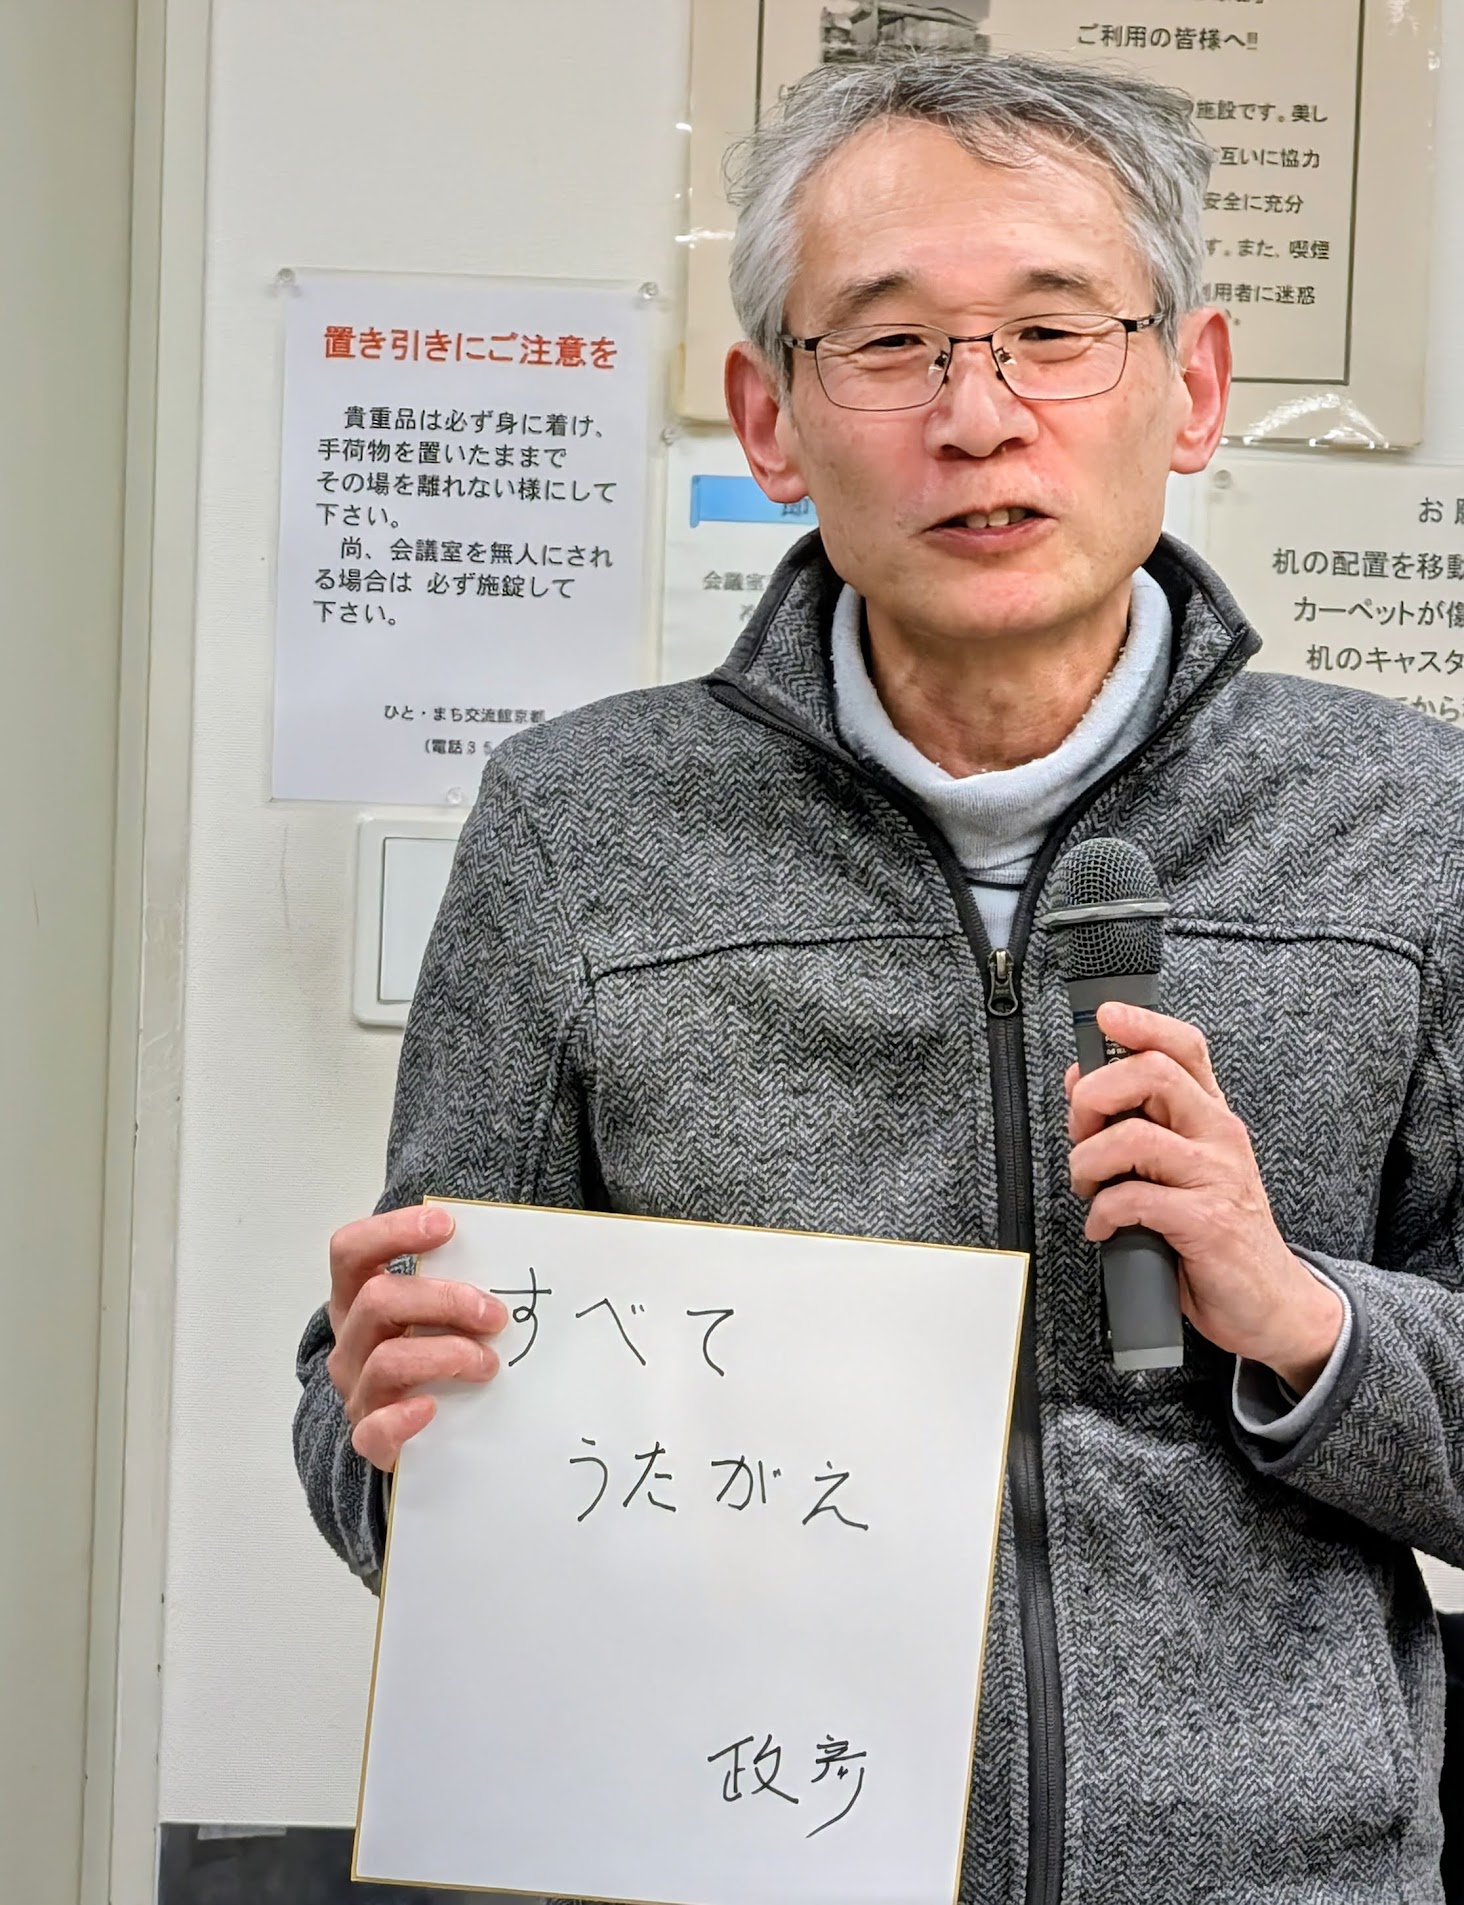 ご利用の皆様へ!!
施設です。美し
互いに協力
安全に充分
す。また、喫煙
用者に迷惑
置き引きにご注意を
貴重品は必ず身に着け、
手荷物を置いたままで
その場を離れない様にして
下さい。
尚、会議室を無人にされ
る場合は 必ず施錠して
下さい。
ひと・まち交流館京都
(電話35
会議室
お
机の配置を移動
カーペットが傷
机のキャスタ
から
すべて
うたがえ
政彦